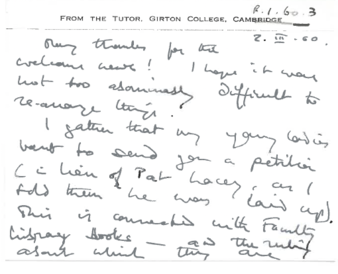 R.1.60.3
FROM THE TUTOR, GIRTON COLLEGE, CAMBRIDGE
2. III. 60.
Many thanks for the
welcome news! I hope it was
not too abominably difficult to
re-arrange things.
I gather that my young ladies
want to send you a petition
(in lieu of Pat Lacey, as I
told them he was laid up).
This is connected with Faculty
Library books — and the
about which they are